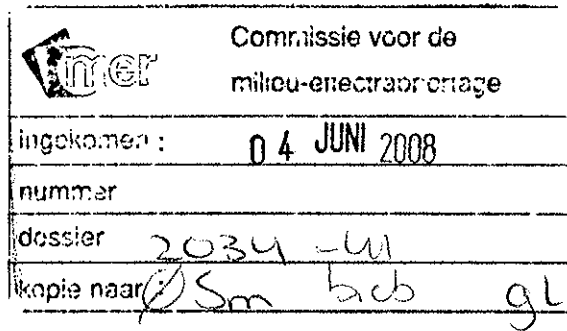 mer
Commissie voor de
milieu-effectrapportage
ingekomen : 04 JUNI 2008
nummer
dossier 2034 - 41
kopie naar : Sm bib gl